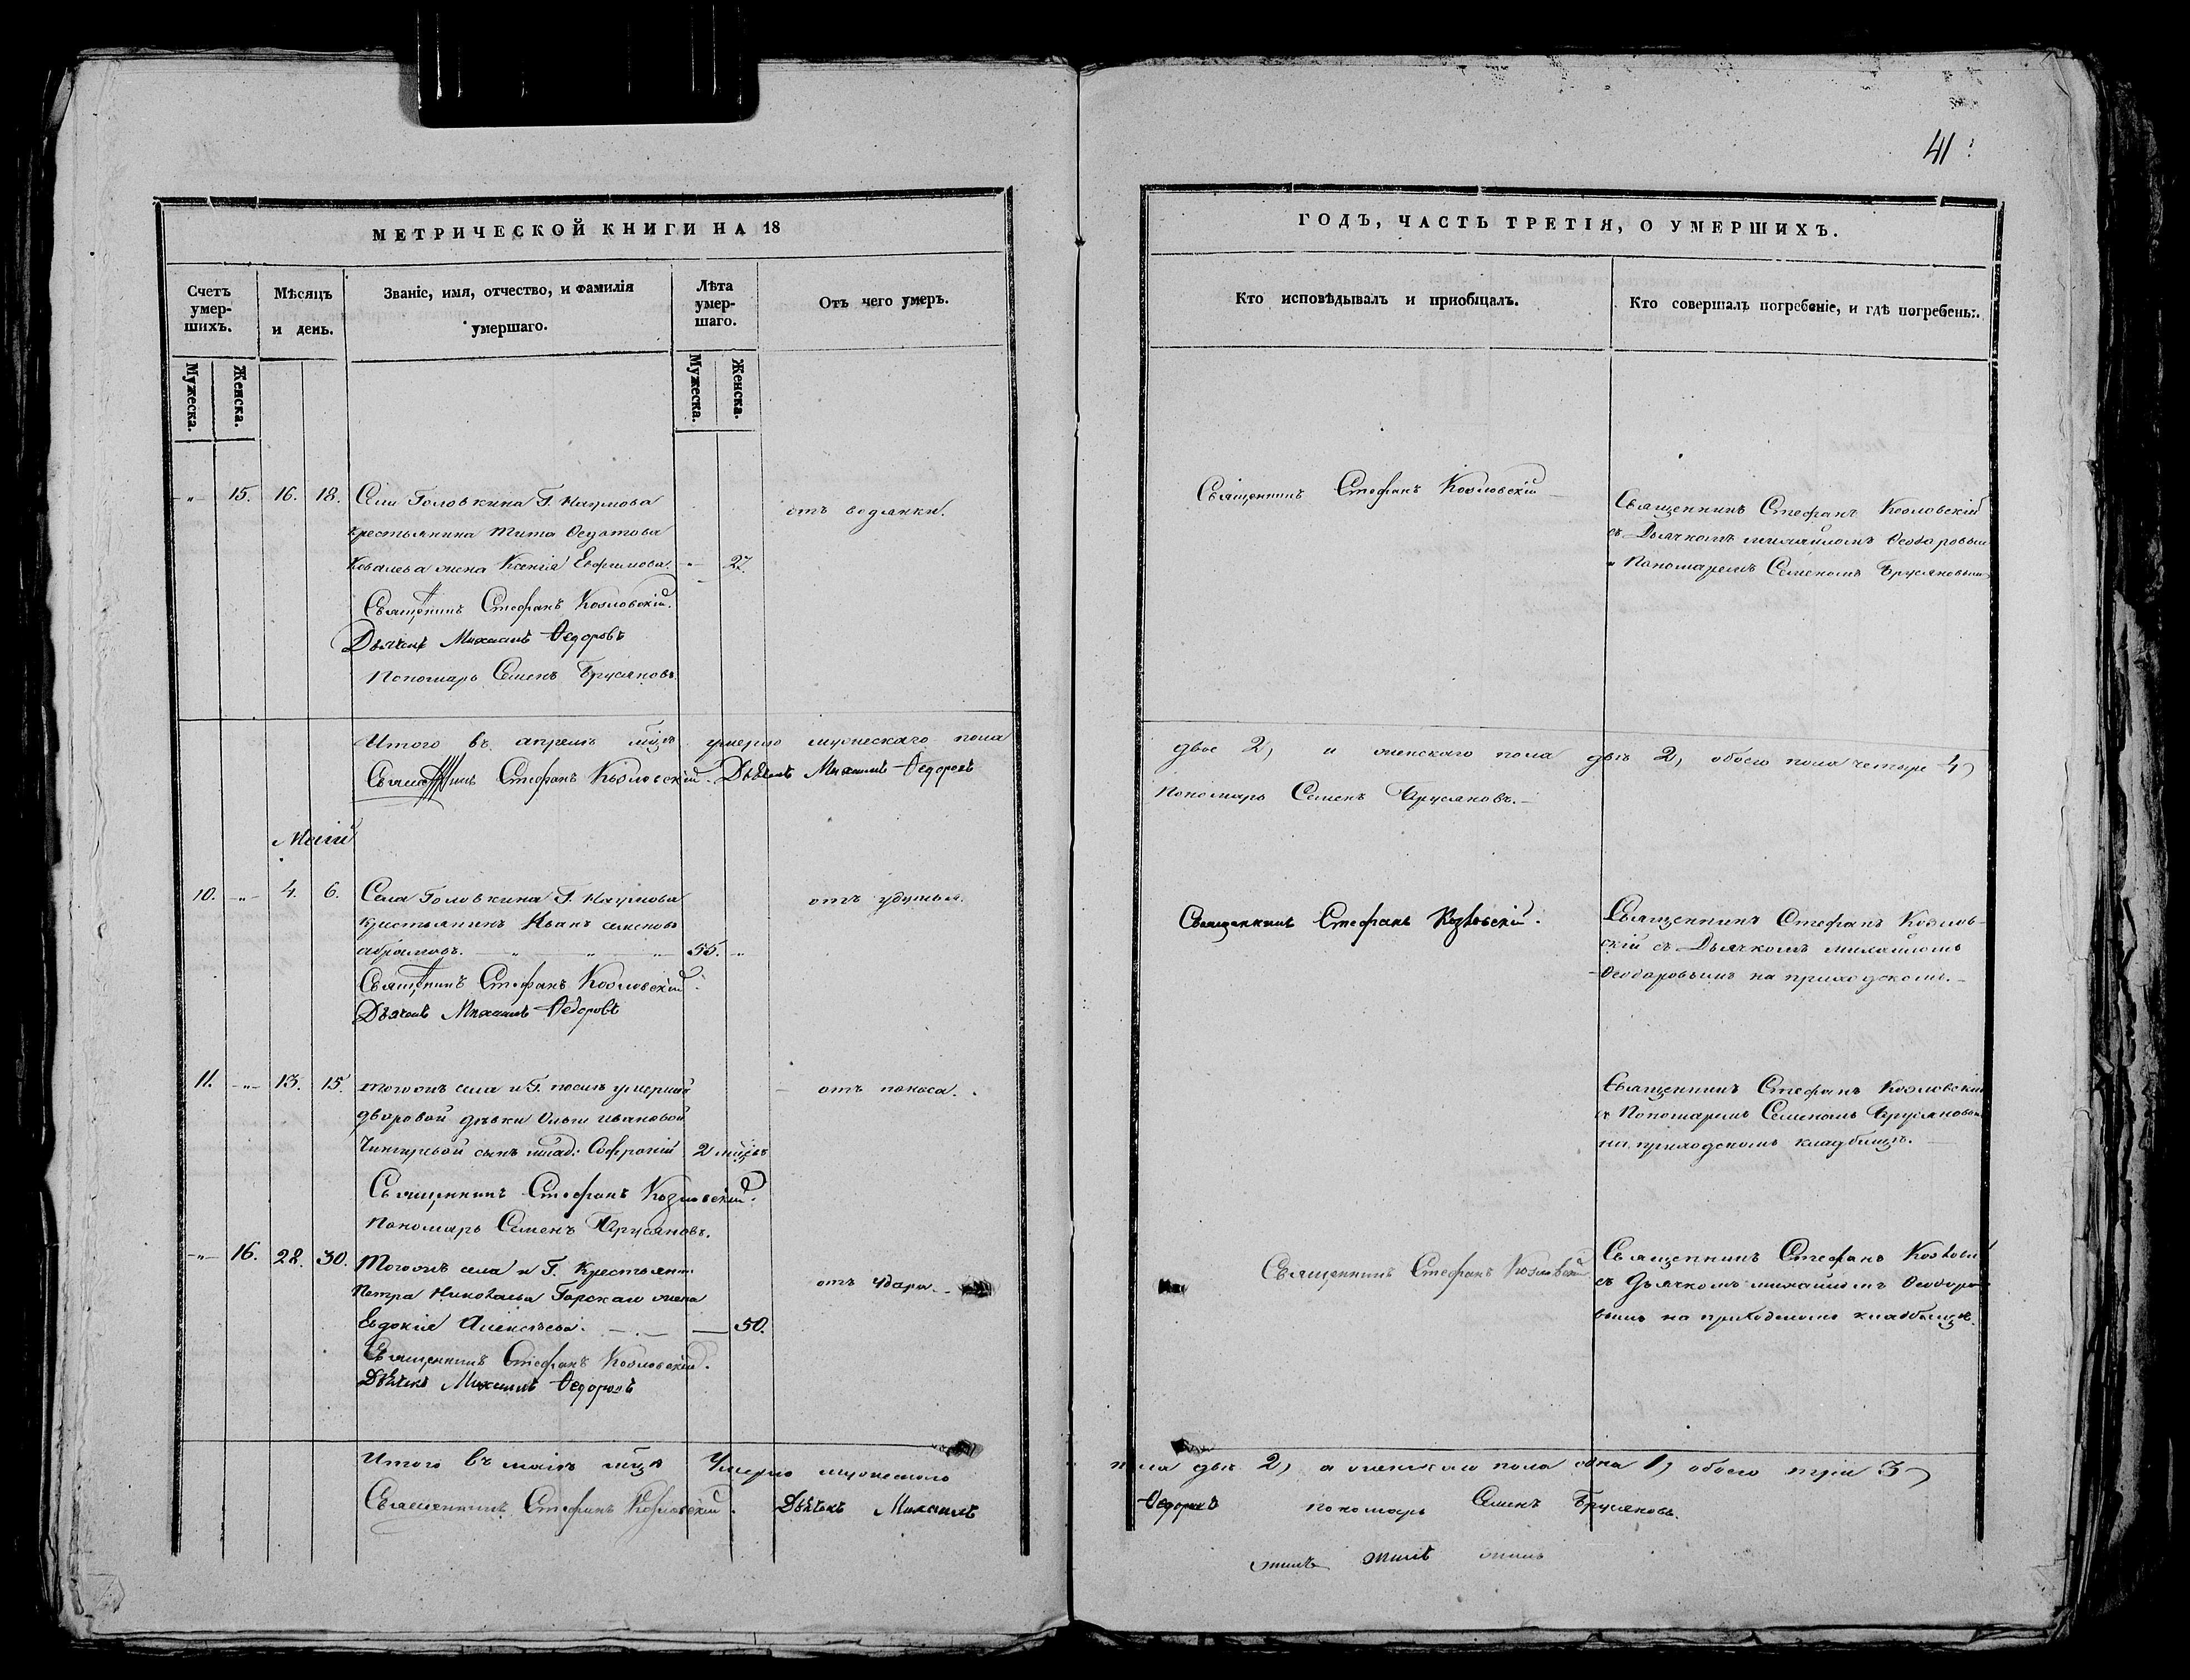 41
МЕТРИЧЕСКОЙ КНИГИ НА 18
Счетъ умер-шихъ.
Мѣсяцъ и день.
Званіе, имя, отчество, и фамилія умершаго.
Лѣта умер-шаго.
Отъ чего умеръ.
Мужеска.
Женска.
Мужеска.
Женска.
-"- 15. 16. 18. Села Головкина Г. Наумова
крестьянина Тита Федотова
Ковалева жена Ксенія Ефимова. -"- 27.
отъ водянки.
Священникъ Стефанъ Козловскій.
Дьячекъ Михаилъ Федоровъ
Пономарь Семенъ Брусяновъ.
Итого въ апрелѣ мцѣ умерло мужескаго пола
Священникъ Стефанъ Козловскій. Дьячекъ Михаилъ Федоровъ
Маій
10. -"- 4. 6. Села Головкина Г. Наумова
крестьянинъ Иванъ Семеновъ
Абрамовъ. 55. -"-
отъ удушья.
Священникъ Стефанъ Козловскій.
Дьячекъ Михаилъ Федоровъ
11. -"- 13. 15. Тогожъ села и Г. послѣ умершей
дворовой дѣвки Ольги Ивановой
сынъ млад. Софроній 2 мцѣвъ
отъ поноса.
Священникъ Стефанъ Козловскій.
Пономарь Семенъ Брусяновъ.
-"- 16. 28. 30. Тогожъ села и Г. Крестьян.
Петра Николаева Горскаго жена
Евдокія Алексѣева. 50.
отъ удара.
Священникъ Стефанъ Козловскій.
Дьячекъ Михаилъ Федоровъ
Итого въ маіѣ мцѣ Умерло мужескаго
Священникъ Стефанъ Козловскій. Дьячекъ Михаилъ
ГОДЪ, ЧАСТЬ ТРЕТІЯ, О УМЕРШИХЪ.
Кто исповѣдывалъ и пріобщалъ.
Кто совершалъ погребеніе, и гдѣ погребены.
Священникъ Стефанъ Козловскій
Священникъ Стефанъ Козловскій
съ Дьячкомъ Михайломъ Феодоровым
и Пономаремъ Семеномъ Брусяновым
двое 2, и женскаго пола двѣ 2, обоего пола четыре 4,
Пономарь Семенъ Брусяновъ.
Священникъ Стефанъ Козловскій.
Священникъ Стефанъ Козлов-
скій съ Дьячкомъ Михайломъ
Феодоровымъ на приходском.
Священникъ Стефанъ Козловскій
съ Пономаремъ Семеномъ Брусяновым
на приходскомъ кладбищѣ.
Священникъ Стефанъ Козловскій
Священникъ Стефанъ Козловск
съ Дьячкомъ Михайломъ Феодоро-
вымъ на приходскомъ кладбищѣ.
пола двѣ 2, а женскаго пола одна 1, обоего три 3,
Федоровъ пономарь Семенъ Брусяновъ.